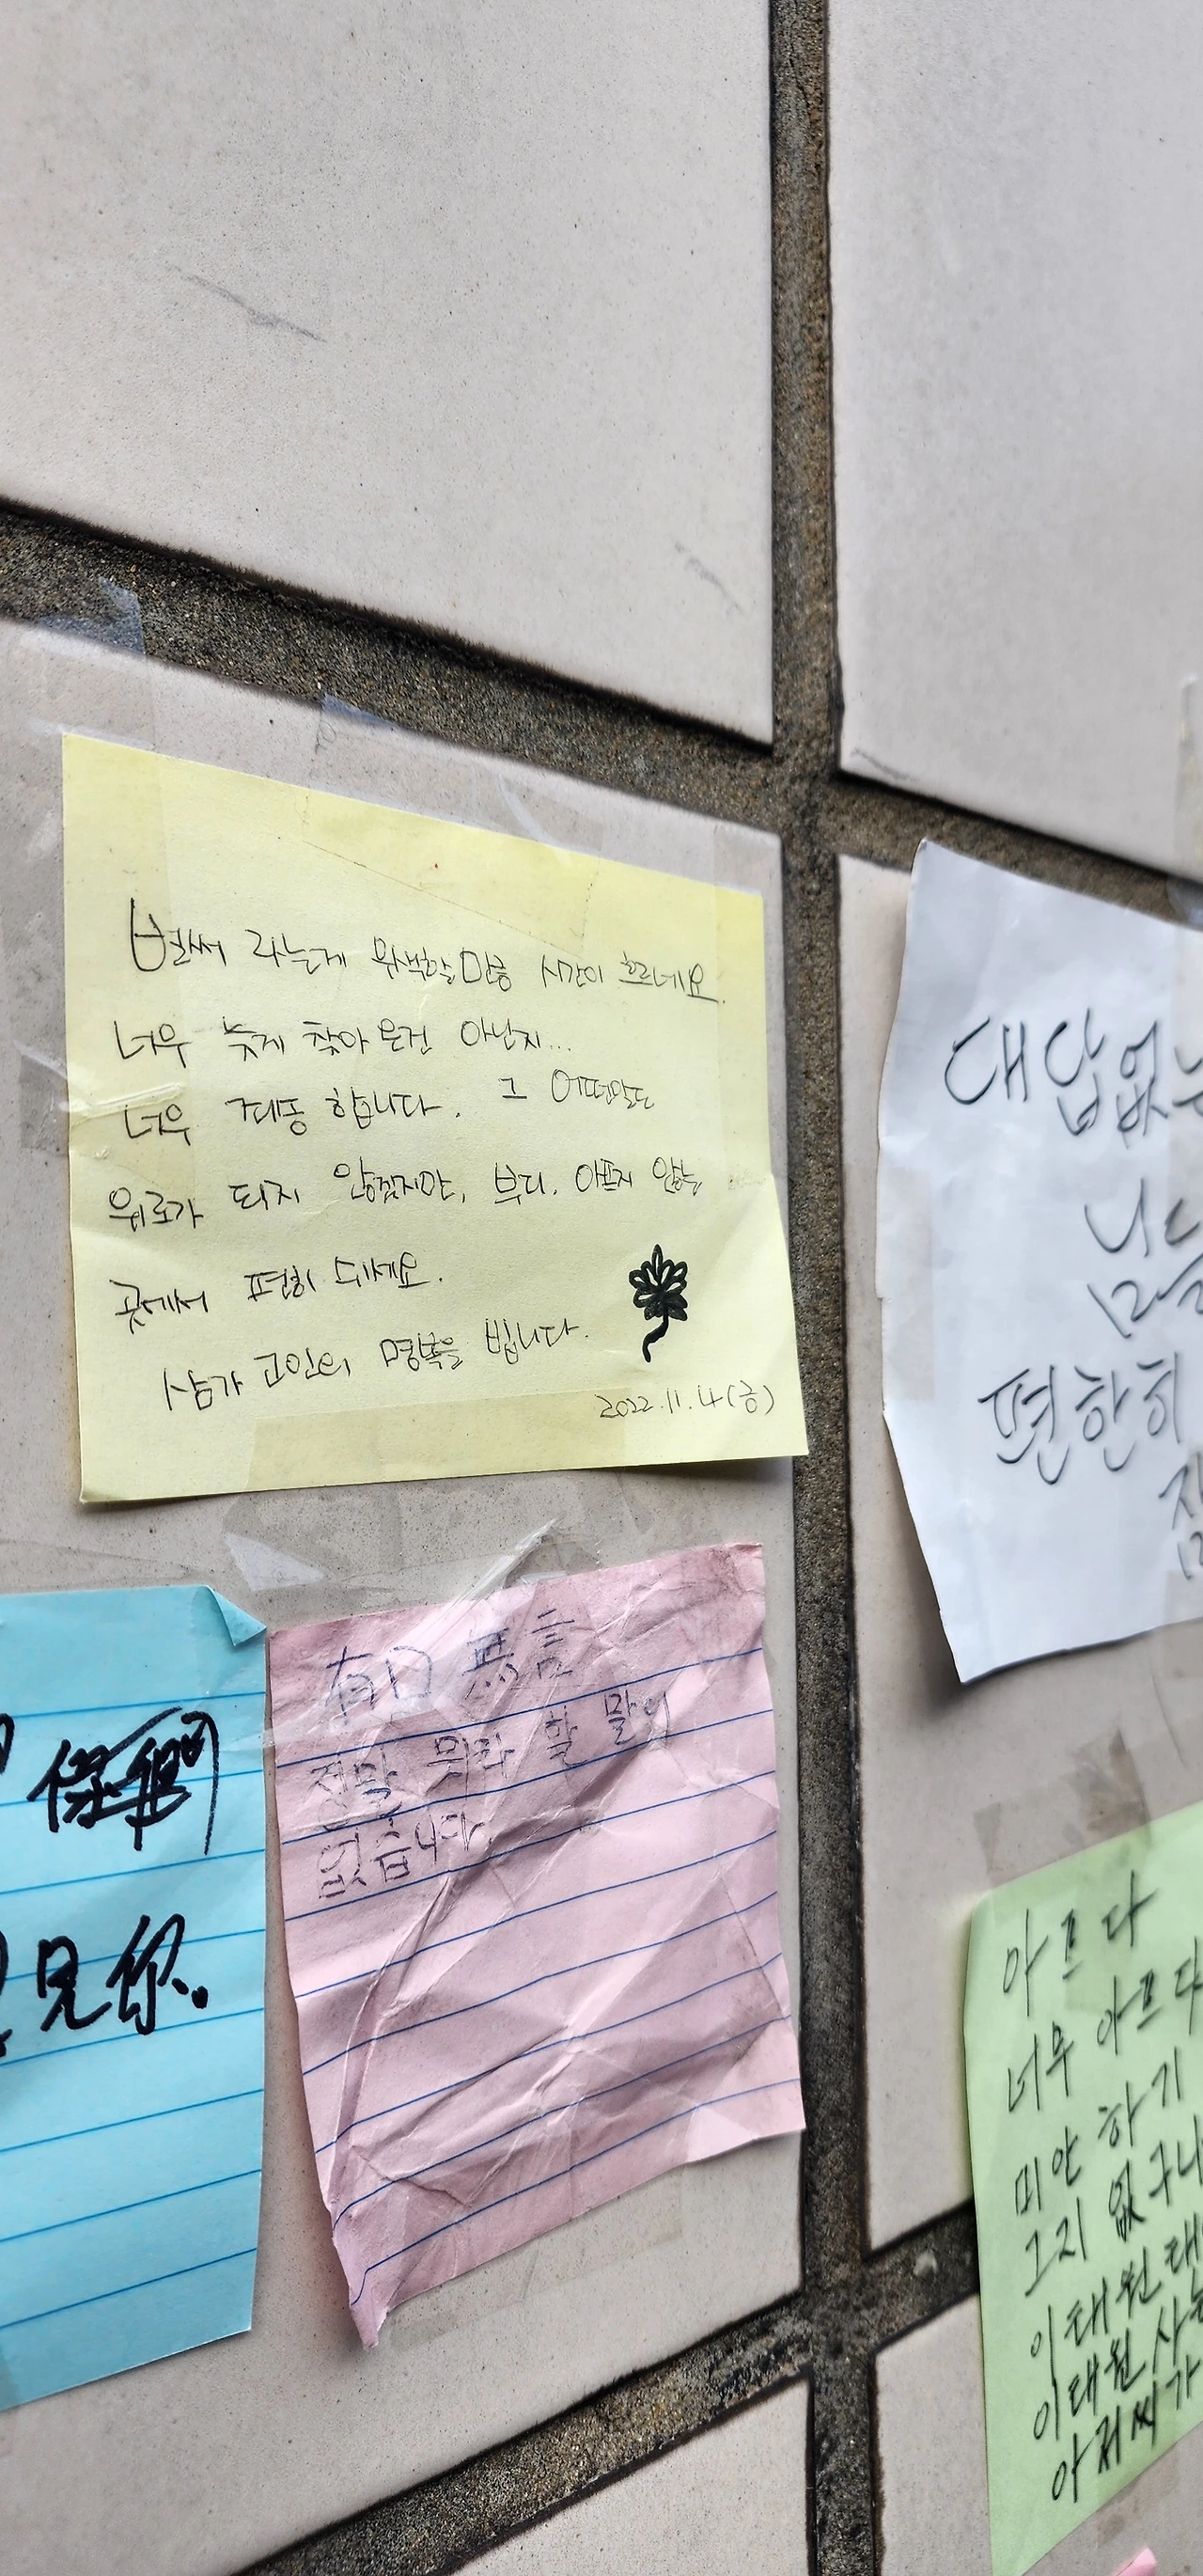 벌써 라는게 무색할만큼 시간이 흐르네요.
너무 늦게 찾아온건 아닌지...
너무 죄송합니다. 그 어떤말도
위로가 되지 않겠지만, 부디, 아프지 않는
곳에서 편히 쉬세요.
삼가 고인의 명복을 빕니다.
2022.11.4(금)
대답없는
편한히
有口無言
정말 뭐라 할 말이
없습니다.
見你。
아프다
너무 아프다
미안하기
그지 없구나
이태원
이태원 사는
아저씨가